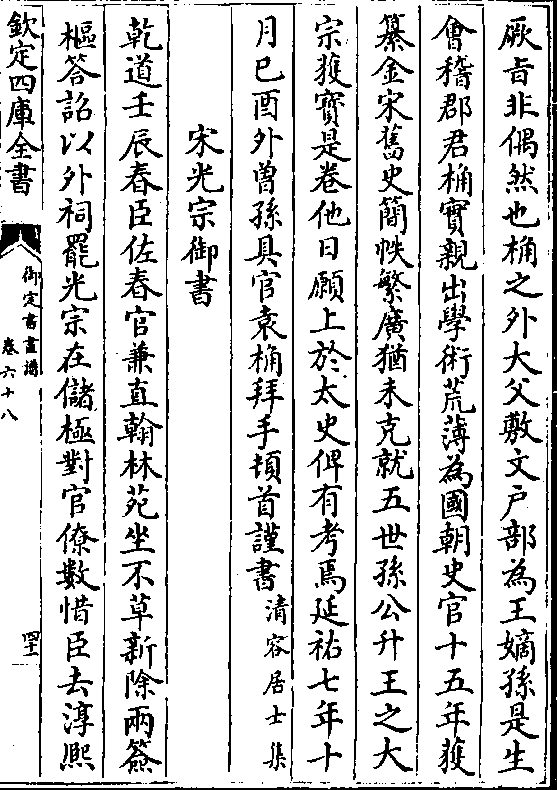 厥㫖非偶然也桷之外大父敷文戸部為王嫡孫是生
㑹稽郡君桷實親出學術荒薄為國朝史官十五年獲
纂金宋舊史簡帙繁廣猶未克就五世孫公升王之大
宗獲寳是卷他日願上於太史俾有考焉延祐七年十
月已酉外曽孫具官袁桷拜手頓首謹書清容居士集
宋光宗御書
乾道壬辰春臣佐春官兼直翰林苑坐不草新除兩簽
樞答詔以外祠罷光宗在儲極對官僚數惜臣去淳熙
欽定四庫全書
御定書畫譜
卷六十八